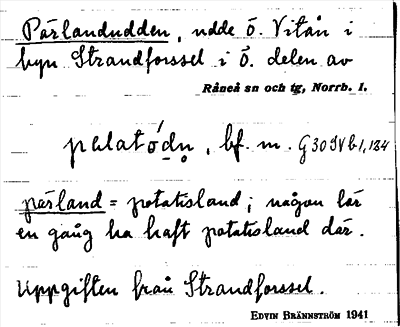 Pärlandudden, udde ö. Vitån i
byn Strandforssel i ö. delen av
Råneå sn och tg, Norrb. l.
bf. m. G30IVb1,184
pärland = potatisland; någon lär
en gång ha haft potatisland där.
Uppgiften från Strandforssel.
EDVIN BRÄNNSTRÖM 1941